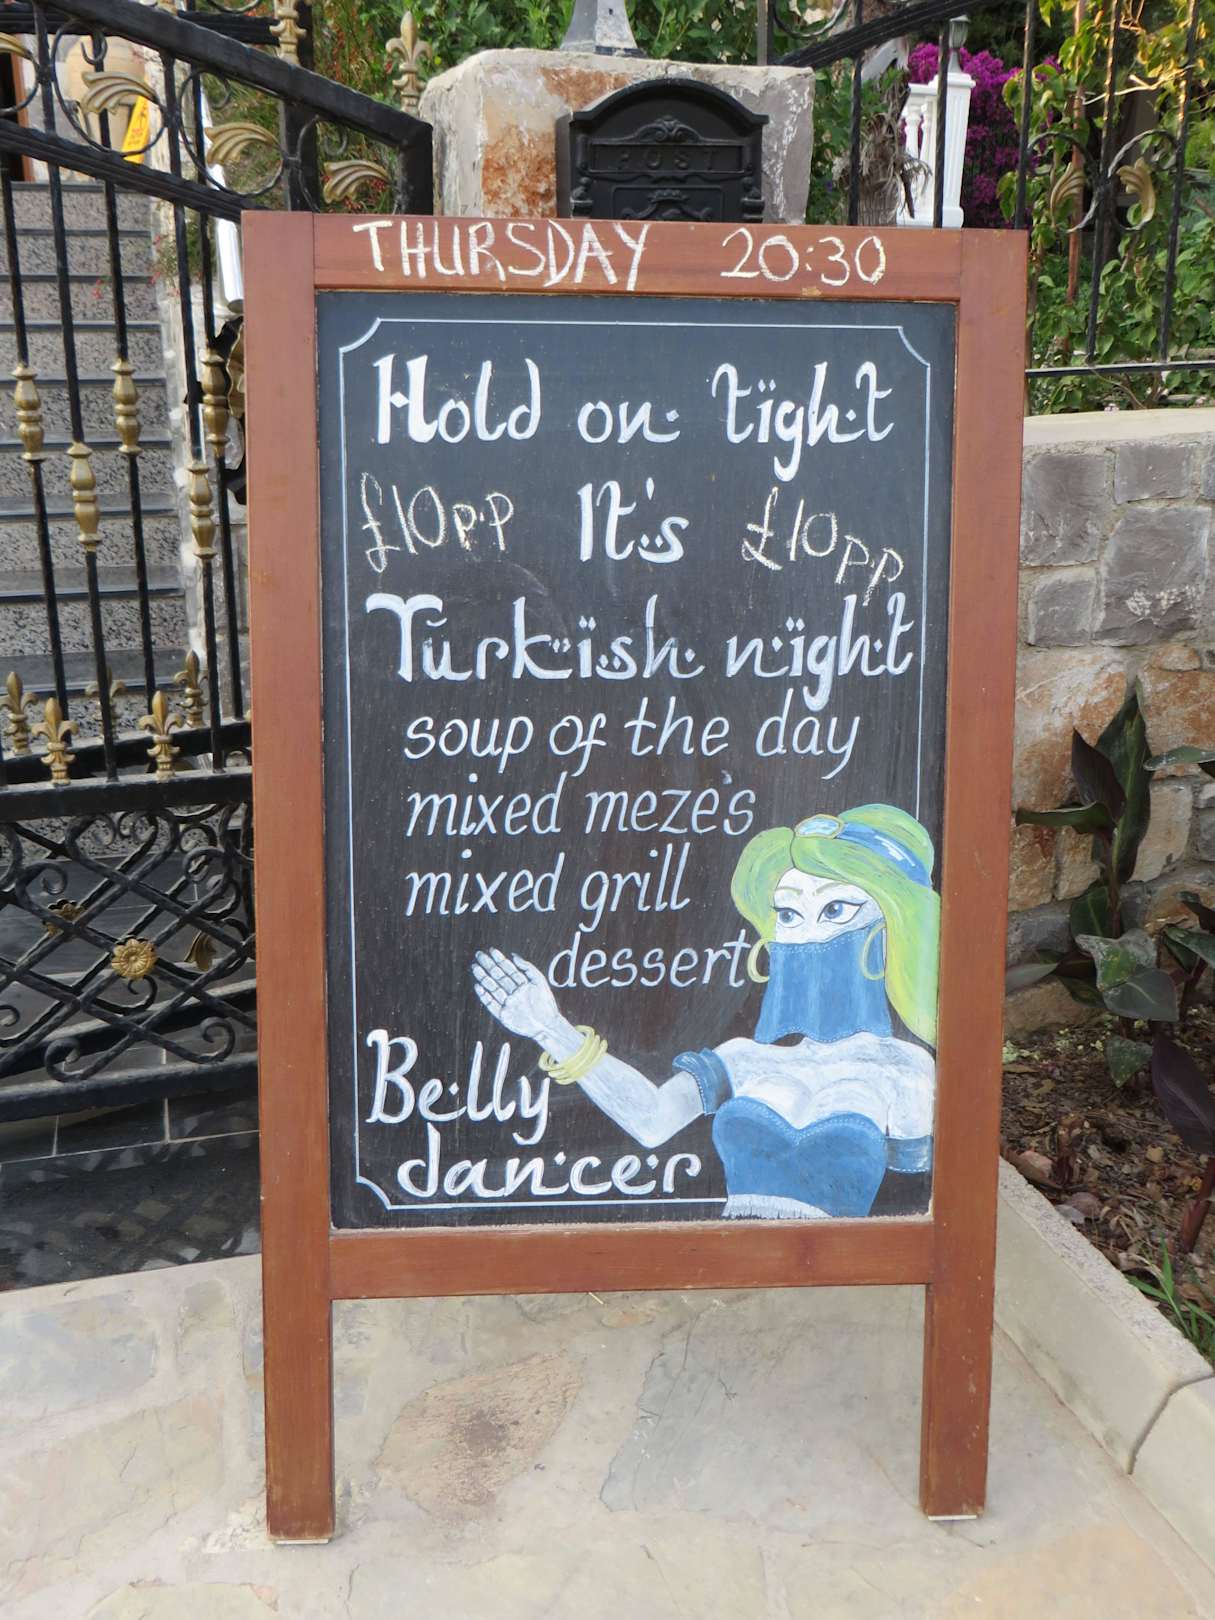 POST
THURSDAY 20:30
Hold on tight
£10 p.p It's £10 pp
Turkish night
soup of the day
mixed meze's
mixed grill
dessert
Belly
dancer